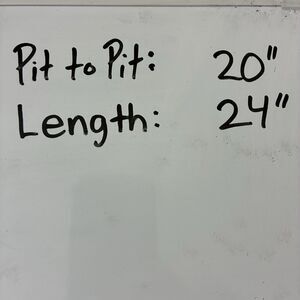 Pit to Pit: 20"
Length: 24"